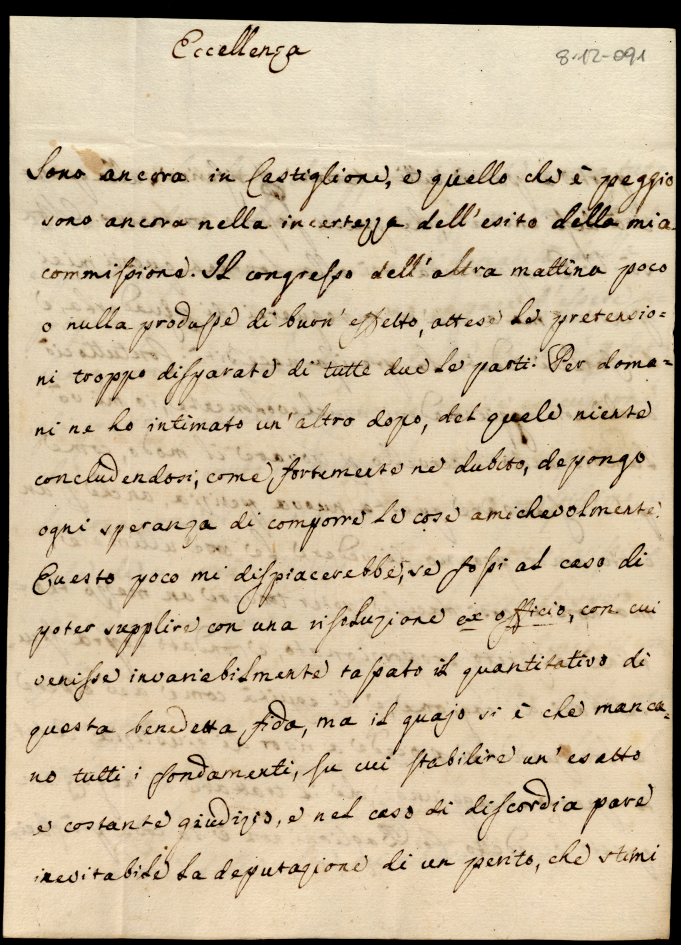 Eccellenza
8-12-091
Sono ancora in Castiglione, e quello che è peggio
sono ancora nella incertezza dell'esito della mia
commissione. Il congresso dell'altra mattina poco
o nulla produsse di buon'effetto, attese le pretensio=
ni troppo disparate di tutte due le parti. Per doma=
ni ne ho intimato un'altro dopo, del quale niente
concludendosi, come fortemente ne dubito, depongo
ogni speranza di comporre le cose amichevolmente.
Questo poco mi dispiacerebbe, se fossi al caso di
poter supplire con una risoluzione ex officio, con cui
venisse invariabilmente tassato il quantitativo di
questa benedetta fida, ma il guajo si è che manca=
no tutti i fondamenti, su cui stabilire un'esatto
e costante giudizio, e nel caso di discordia pare
inevitabile la deputazione di un perito, che stimi